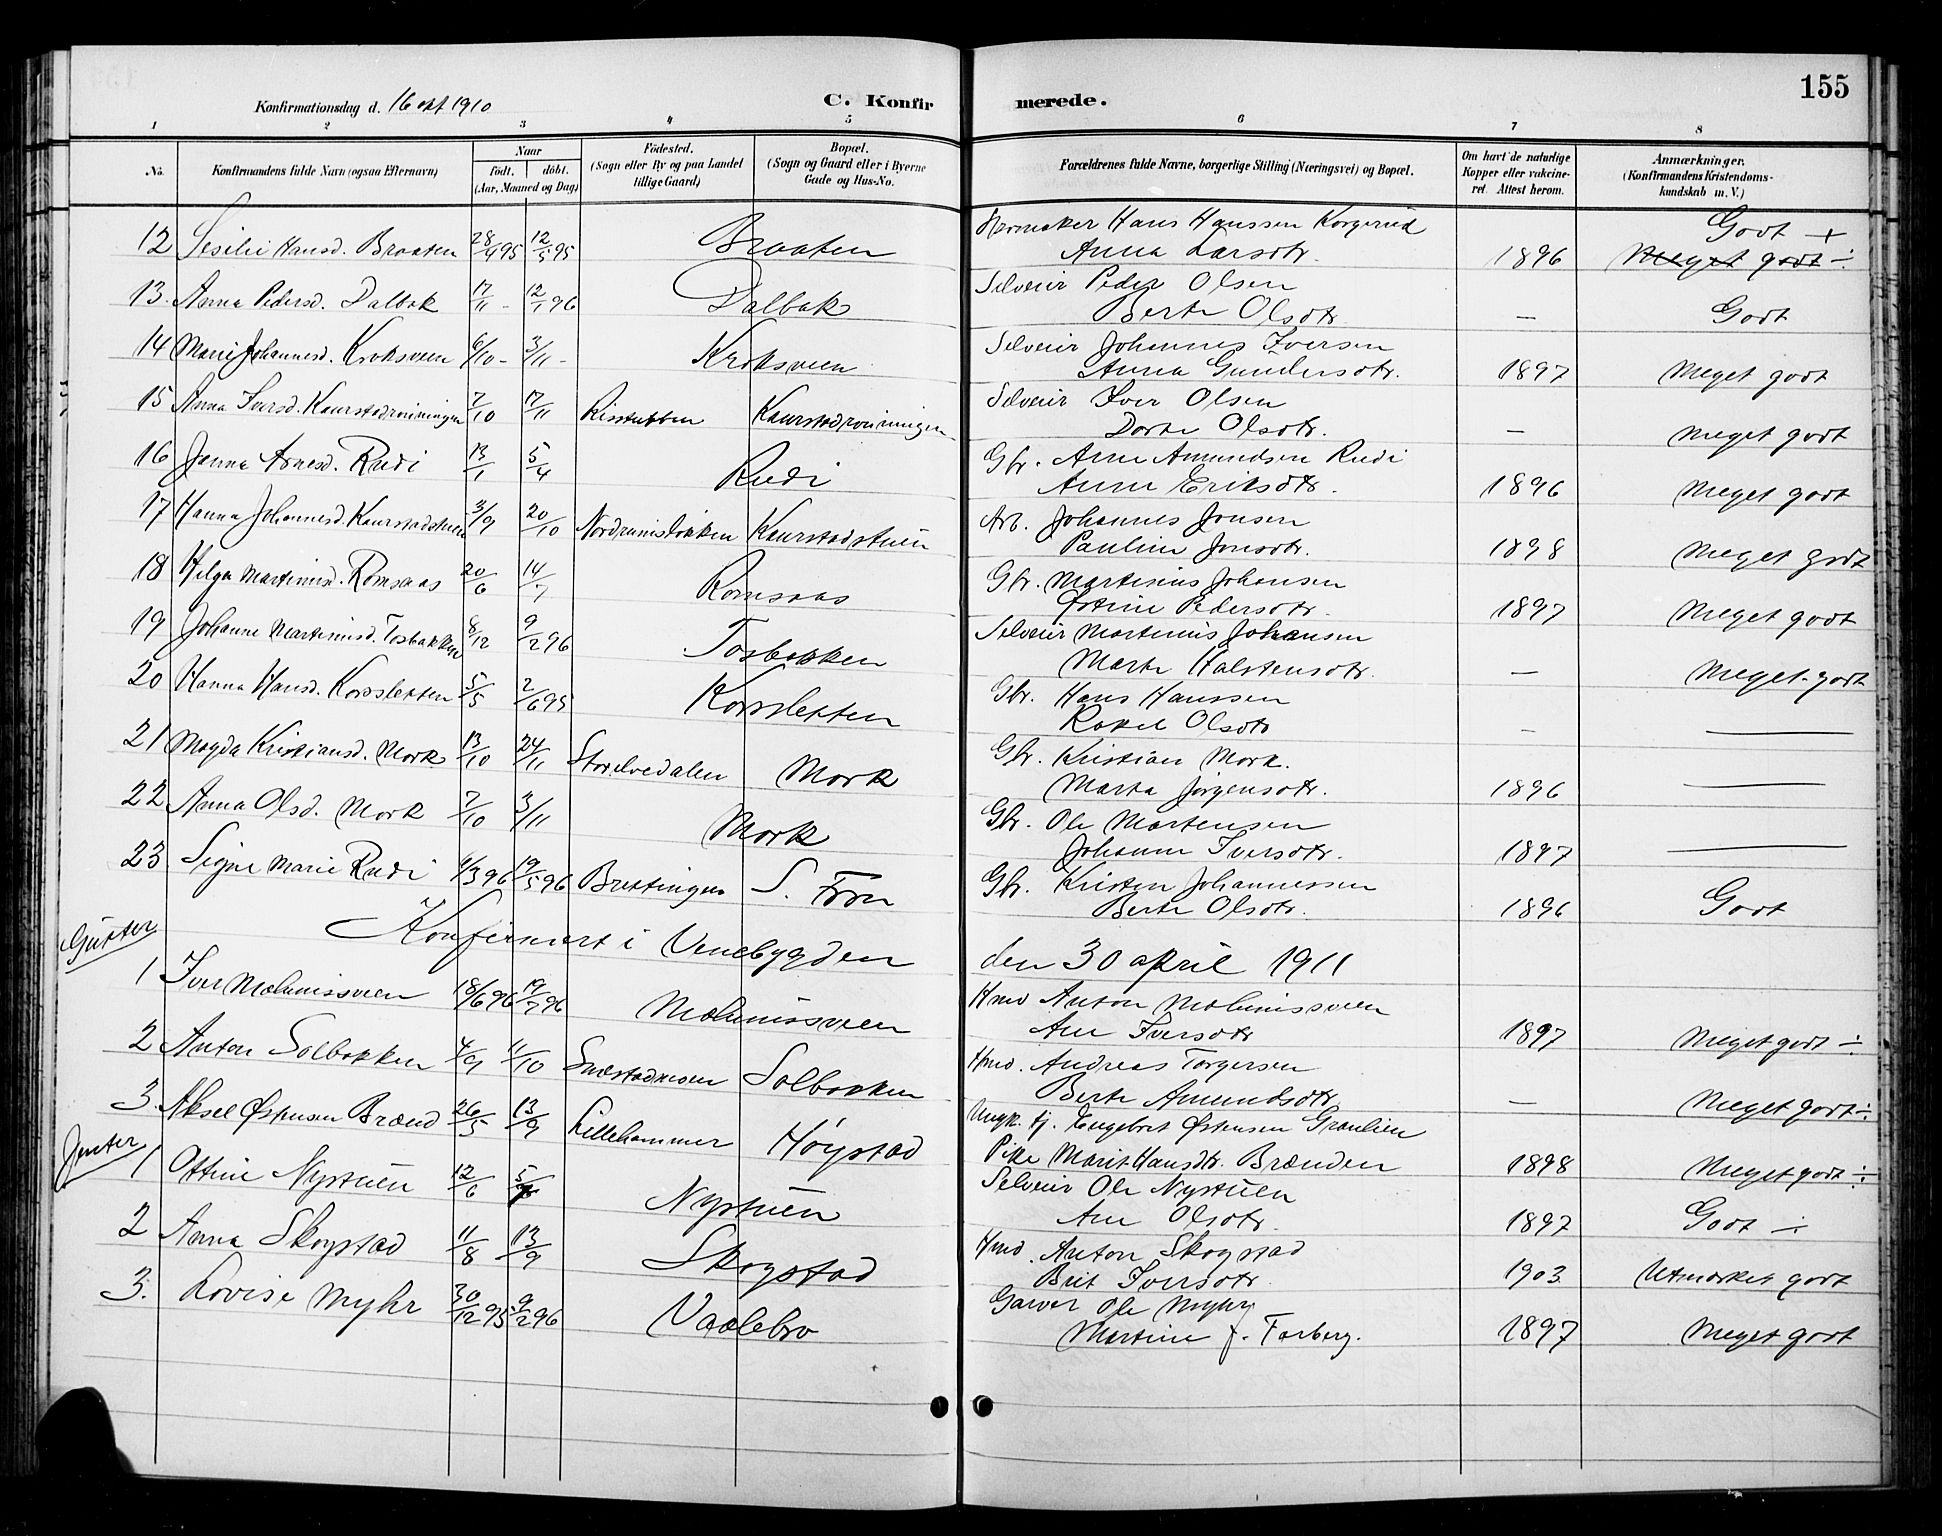 155
Konfirmationsdag d. 16 okt 1910 C. Konfirmerede.
1 2 3 4 5 6 7 8
No. Konfirmandens fulde Navn (ogsaa Efternavn) Naar født. døbt. (Aar, Maaned og Dag) Fødested. (Sogn eller By og paa Landet tillige Gaard) Bopæl. (Sogn og Gaard eller i Byerne Gade og Hus-No. Forældrenes fulde Navne, borgerlige Stilling (Næringsvei) og Bopæl. Om havt de naturlige Kopper eller vakcineret. Attest herom. Anmærkninger. (Konfirmandens Kristendomskundskab m. V.)
12 Sesilie Hansd. Braaten 28/4 95 12/5 95 Braaten Hans Hanssen Korgerud Godt +
Anna Larsdtr. 1896 Meget godt ÷
13. Anna Pedersd. Dalbak 17/11 - 12/1 96 Dalbak Selveier Peder Olsen
Berte Olsdtr. — Godt
14 Marie Johannesd. Kroksveen 6/10 - 3/11 - Kroksveen Selveier Johannes Iversen
Anna Gundersdtr. 1897 Meget godt
15 Anna Iversd. Kaurstadvinningen 7/10 17/11 Risstubben Kaurstadvinningen Selveier Iver Olsen
Dorte Olsdtr. — Meget godt
16 Janna Arnesd. Rudi 13/1 5/4 Rudi Gbr. Arne Amundsen Rudi
Anne Eriksdtr. 1896 Meget godt
17 Hanna Johannesd. Kaurstadstuen 3/9 20/10 Kaurstadstuen Arb. Johannes Jonsen
Pauline Jonsdtr. 1898 Meget godt
18 Helga Martinusd. Romsaas 20/6 14/7 Romsaas Gbr. Martinius Johansen
Østine Pedersdtr. 1897 Meget godt
19 Johanne Martinusd. Tosbakken 8/12 9/2 96 Tosbakken Selveier Martinus Johansen
Marte Halstensdtr. — Meget godt
20 Hanna Hansd. Korsletten 5/5 2/6 95 Korsletten Gbr. Hans Hanssen
Rakel Olsdtr — ——
21 Magda Kristiansd. Mork 13/10 24/11 Storelvedalen Mork Gbr. Kristian Mork.
Marta Jørgensdtr. 1896 ——
22 Anna Olsd. Mork 7/10 3/11 Mork Gbr. Ole Martensen
Johanne Iversdtr. 1897 ——
23 Signe Marie Rudi 4/3 96 19/5 96 Brettingen S. Fron Gbr. Kristen Johannessen
Berte Olsdtr. 1896 Godt
Konfirmert i Venebygden den 30 april 1911
Gutter
1 Iver Mælumssveen 18/6 96 19/7 96 Mælumssveen Hmd Anton Mælumssveen
Ane Iversdtr 1897 Meget godt ÷
2 Anton Solbakken 4/9 11/10 Solbakken Hmd. Andreas Torgersen
Berte Amundsdtr — Meget godt ÷
3. Aksel Østensen Brænd 26/5 13/9 Lillehammer Høystad Ungk. tj. Engebret Østensen Graulien
Pike Marit Hansdtr. Brænden 1898 Meget godt ÷
Jenter
1 Ottine Nystuen 12/6 5/7 Nystuen Selveier Ole Nystuen
Ane Olsdtr. 1897 Godt ÷
2 Anna Skogstad 11/8 13/9 Skogstad Hmd. Anton Skogstad
Brit Iversdtr. 1903 Utmærket godt
3. Lovise Myhr 30/12 95 9/2 96 Vaalebro Garver Ole Myhr
Martine J. Forberg. 1897 Meget godt